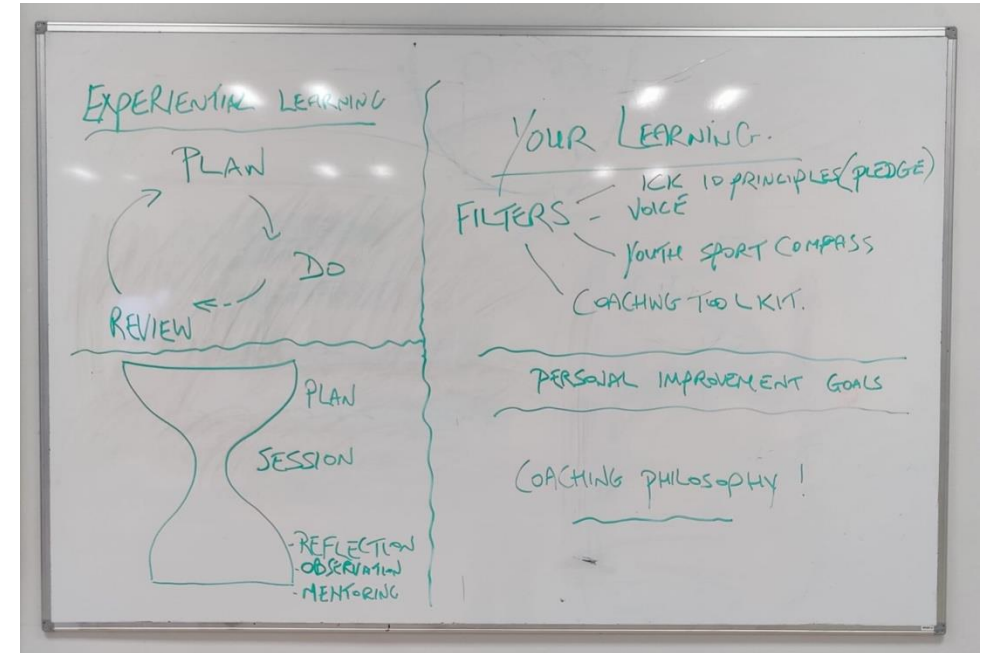 EXPERIENTIAL LEARNING
PLAN
DO
REVIEW
PLAN
SESSION
-REFLECTION
-OBSERVATION
-MENTORING
YOUR LEARNING.
ICK 10 PRINCIPLES (PLEDGE)
FILTERS
VOICE
YOUTH SPORT COMPASS
COACHING TOOLKIT.
PERSONAL IMPROVEMENT GOALS
COACHING PHILOSOPHY!